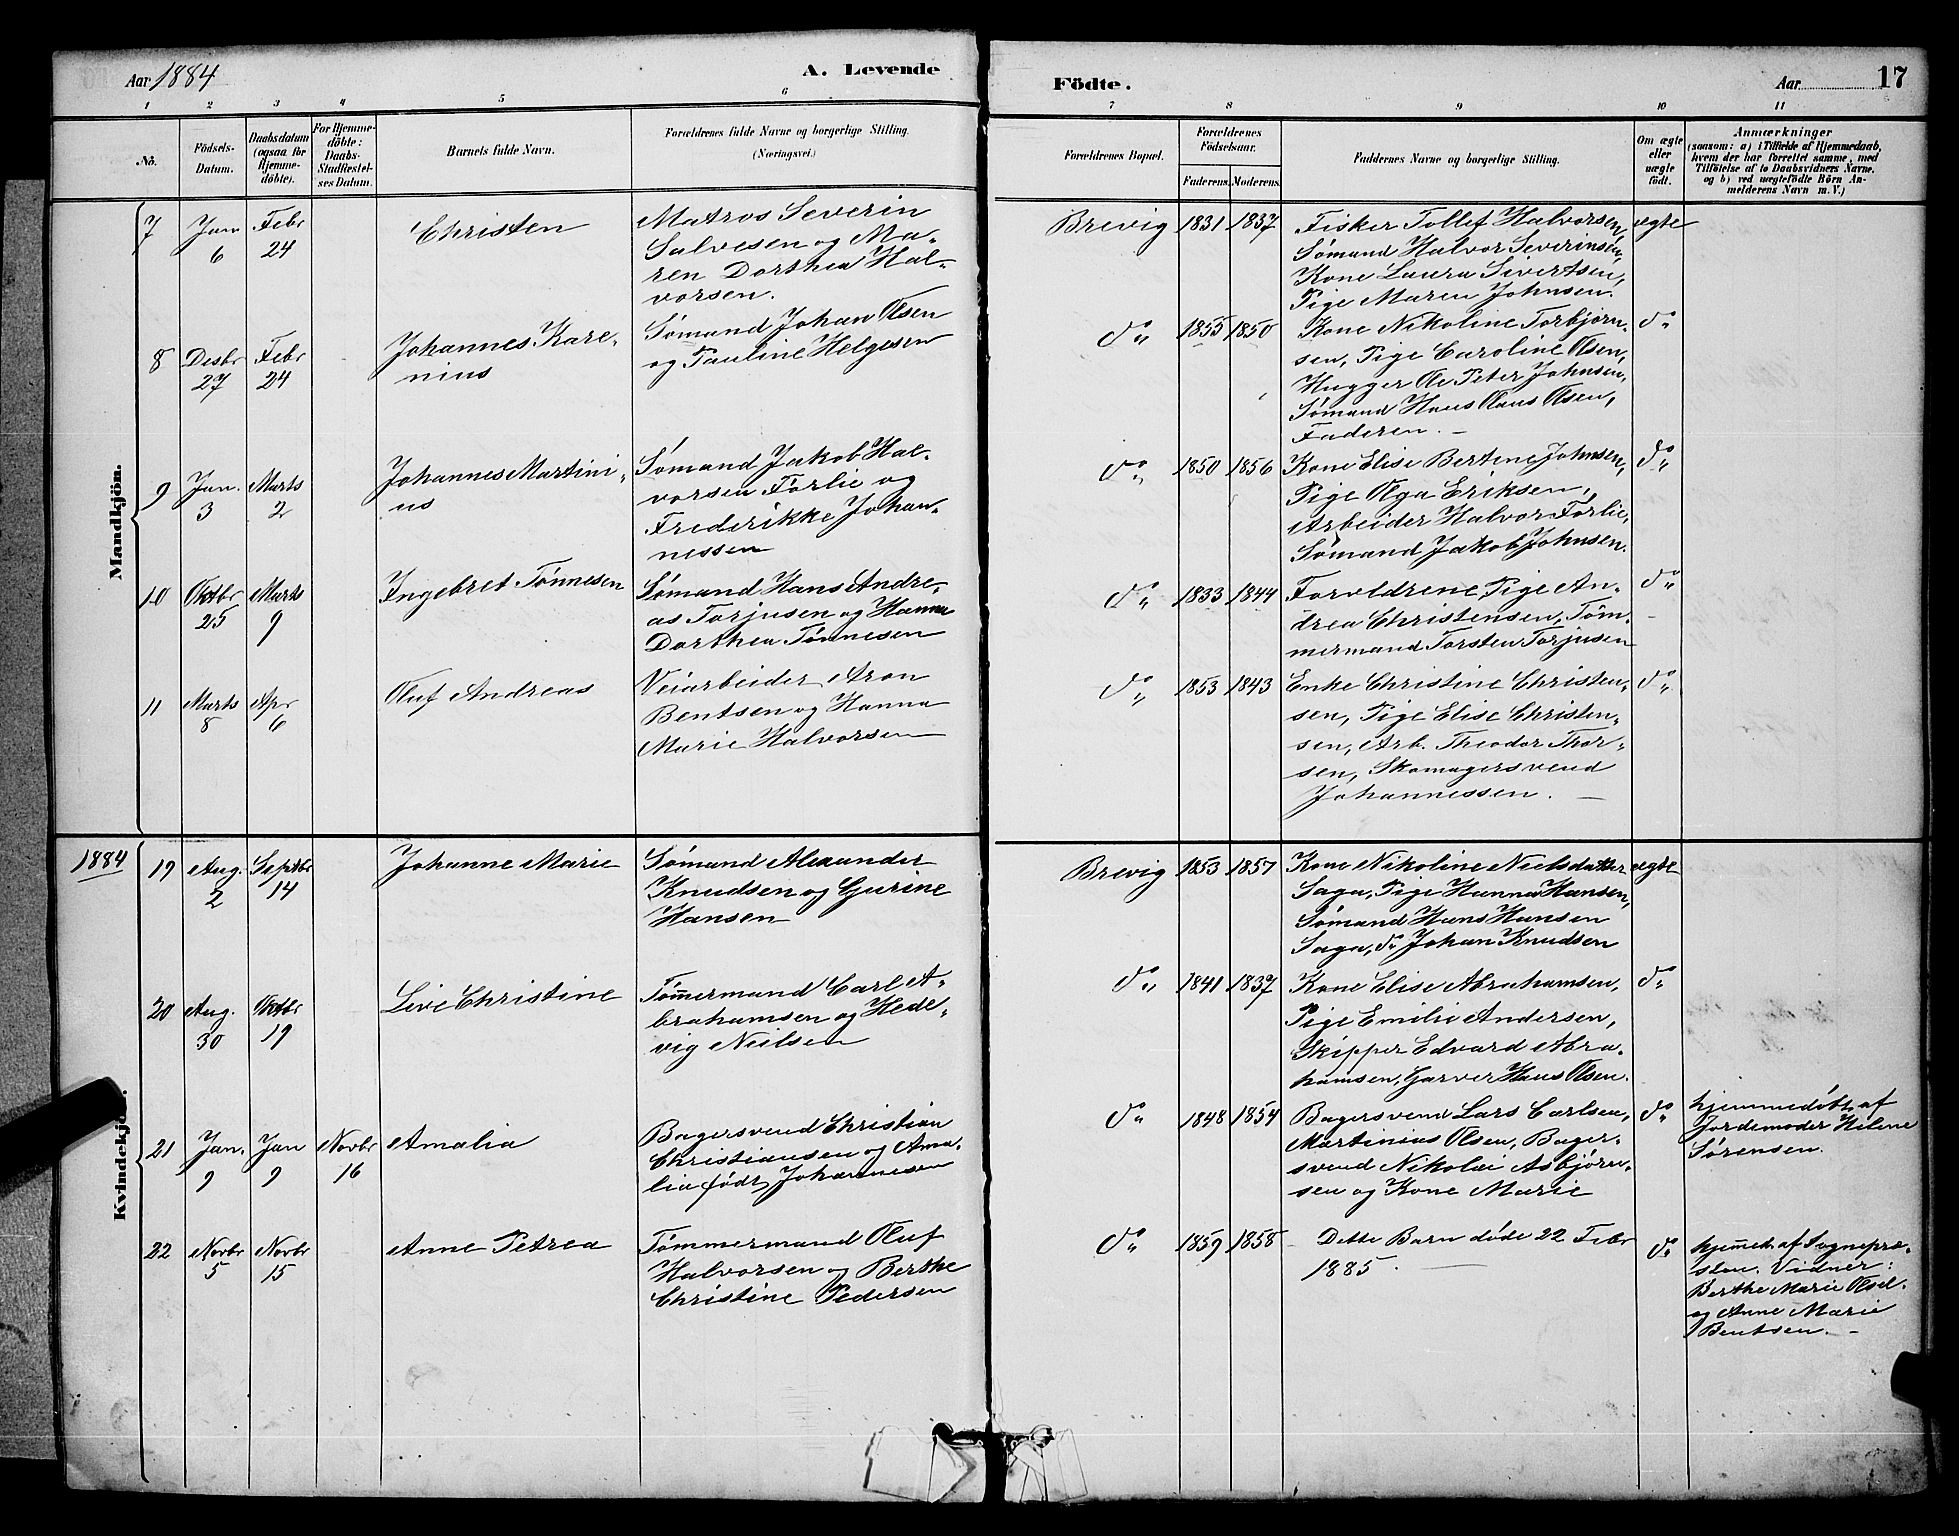 Aar 1884
A. Levende
Födte.
Aar
17
1 2 3 4 5 6 7 8 9 10 11
No.
Födsels-
Datum.
Daabsdatum
(ogsaa for
Hjemme-
döbte).
For Hjemme-
döbte:
Daabs-
Stadfæstel-
ses Datum.
Barnets fulde Navn.
Forældrenes fulde Navne og borgerlige Stilling.
(Næringsvei.)
Forældrenes Bopæl.
Forældrenes
Födselsaar.
Faderens. Moderens.
Faddernes Navne og borgerlige Stilling.
Om ægte
eller
uægte
födt.
Anmærkninger
(saasom: a) i Tilfælde af Hjemmedaab,
hvem der har forrettet samme, med
Tilföielse af to Daabsvidners Navne.
og b) ved uægtefödte Börn An-
melderens Navn m. V.)
Mandkjön.
7
Jan
6
Febr
24
Christen
Matros Severin
Salvesen og Ma-
ren Dorthea Hal-
vorsen.
Brevig 1831 1837
Fisker Tollef Halvorsen,
Sømand Halvor Severinsen,
Kone Laura Sivertsen,
Pige Maren Johnsen.
ægte
8
Desbr
27
Febr
24
Johannes Kare-
nius
Sømand Johan Olsen
og Pauline Helgesen
do 1855 1850
Kone Nikoline Torbjørn-
sen, Pige Caroline Olsen,
Hugger Ole Peter Johnsen,
Sømand Hans Olaus Olsen,
Faderen. —
do
9
Jan.
3
Marts
2
Johannes Martini-
us
Sømand Jakob Hal-
vorsen Førlie og
Frederikke Johan-
nessen
do 1850 1856
Kone Elise Bertine Johnsen,
Pige Olga Eriksen,
Arbeider Halvor Førlie,
Sømand Jakob Johnsen.
do
10
Oktbr
25
Marts
9
Ingebret Tønnesen
Sømand Hans Andre-
as Torjusen og Hanna
Dorthea Tønnesen
do 1833 1844
Forældrene, Pige An-
drea Christensen, Tøm-
mermand Torsten Torjusen
do
11
Marts
8
Apr
6
Oluf Andreas
Veiarbeider Aron
Bentsen og Hanna
Marie Halvorsen
do 1853 1843
Enke Christine Christen-
sen, Pige Elise Christen-
sen, Arb. Theodor Thor-
sen, Skomagersvend
Johannessen. —
do
1884
Kvindekjön.
19
Aug.
2
Septbr
14
Johanne Marie
Sømand Alexander
Knudsen og Gurine
Hansen
Brevig 1853 1857
Kone Nikoline Nielsdatter
Saga, Pige Hanna Hansen,
Sømand Hans Hansen
Saga, do Johan Knudsen
ægte
20
Aug.
30
Oktbr
19
Live Christine
Tømmermand Carl A-
brahamsen og Hede-
vig Nielsen
do 1841 1837
Kone Elise Abrahamsen,
Pige Emilie Andersen,
Skipper Edvard Abra-
hamsen, Garver Hans Olsen.
do
21
Jan.
9
Jan
9
Novbr
16
Amalia
Bagersvend Christian
Christiansen og Ama-
lia født Johannesen
do 1848 1854
Bagersvend Lars Carlsen,
Martinius Olsen, Bager-
svend Nikolai Asbjørn-
sen og Kone Marie
do
hjemmedøbt af
Jordemoder Helene
Sørensen.
22
Novbr
5
Novbr
15
Anne Petrea
Tømmermand Oluf
Halvorsen og Berthe
Christine Pedersen
do 1859 1858
Dette Barn døde 22 Febr
1885. —
do
hjemed. af Sognepræ-
sten. Vidner:
Berthe Marie Olsd.
og Anne Marie
Bentsen. —